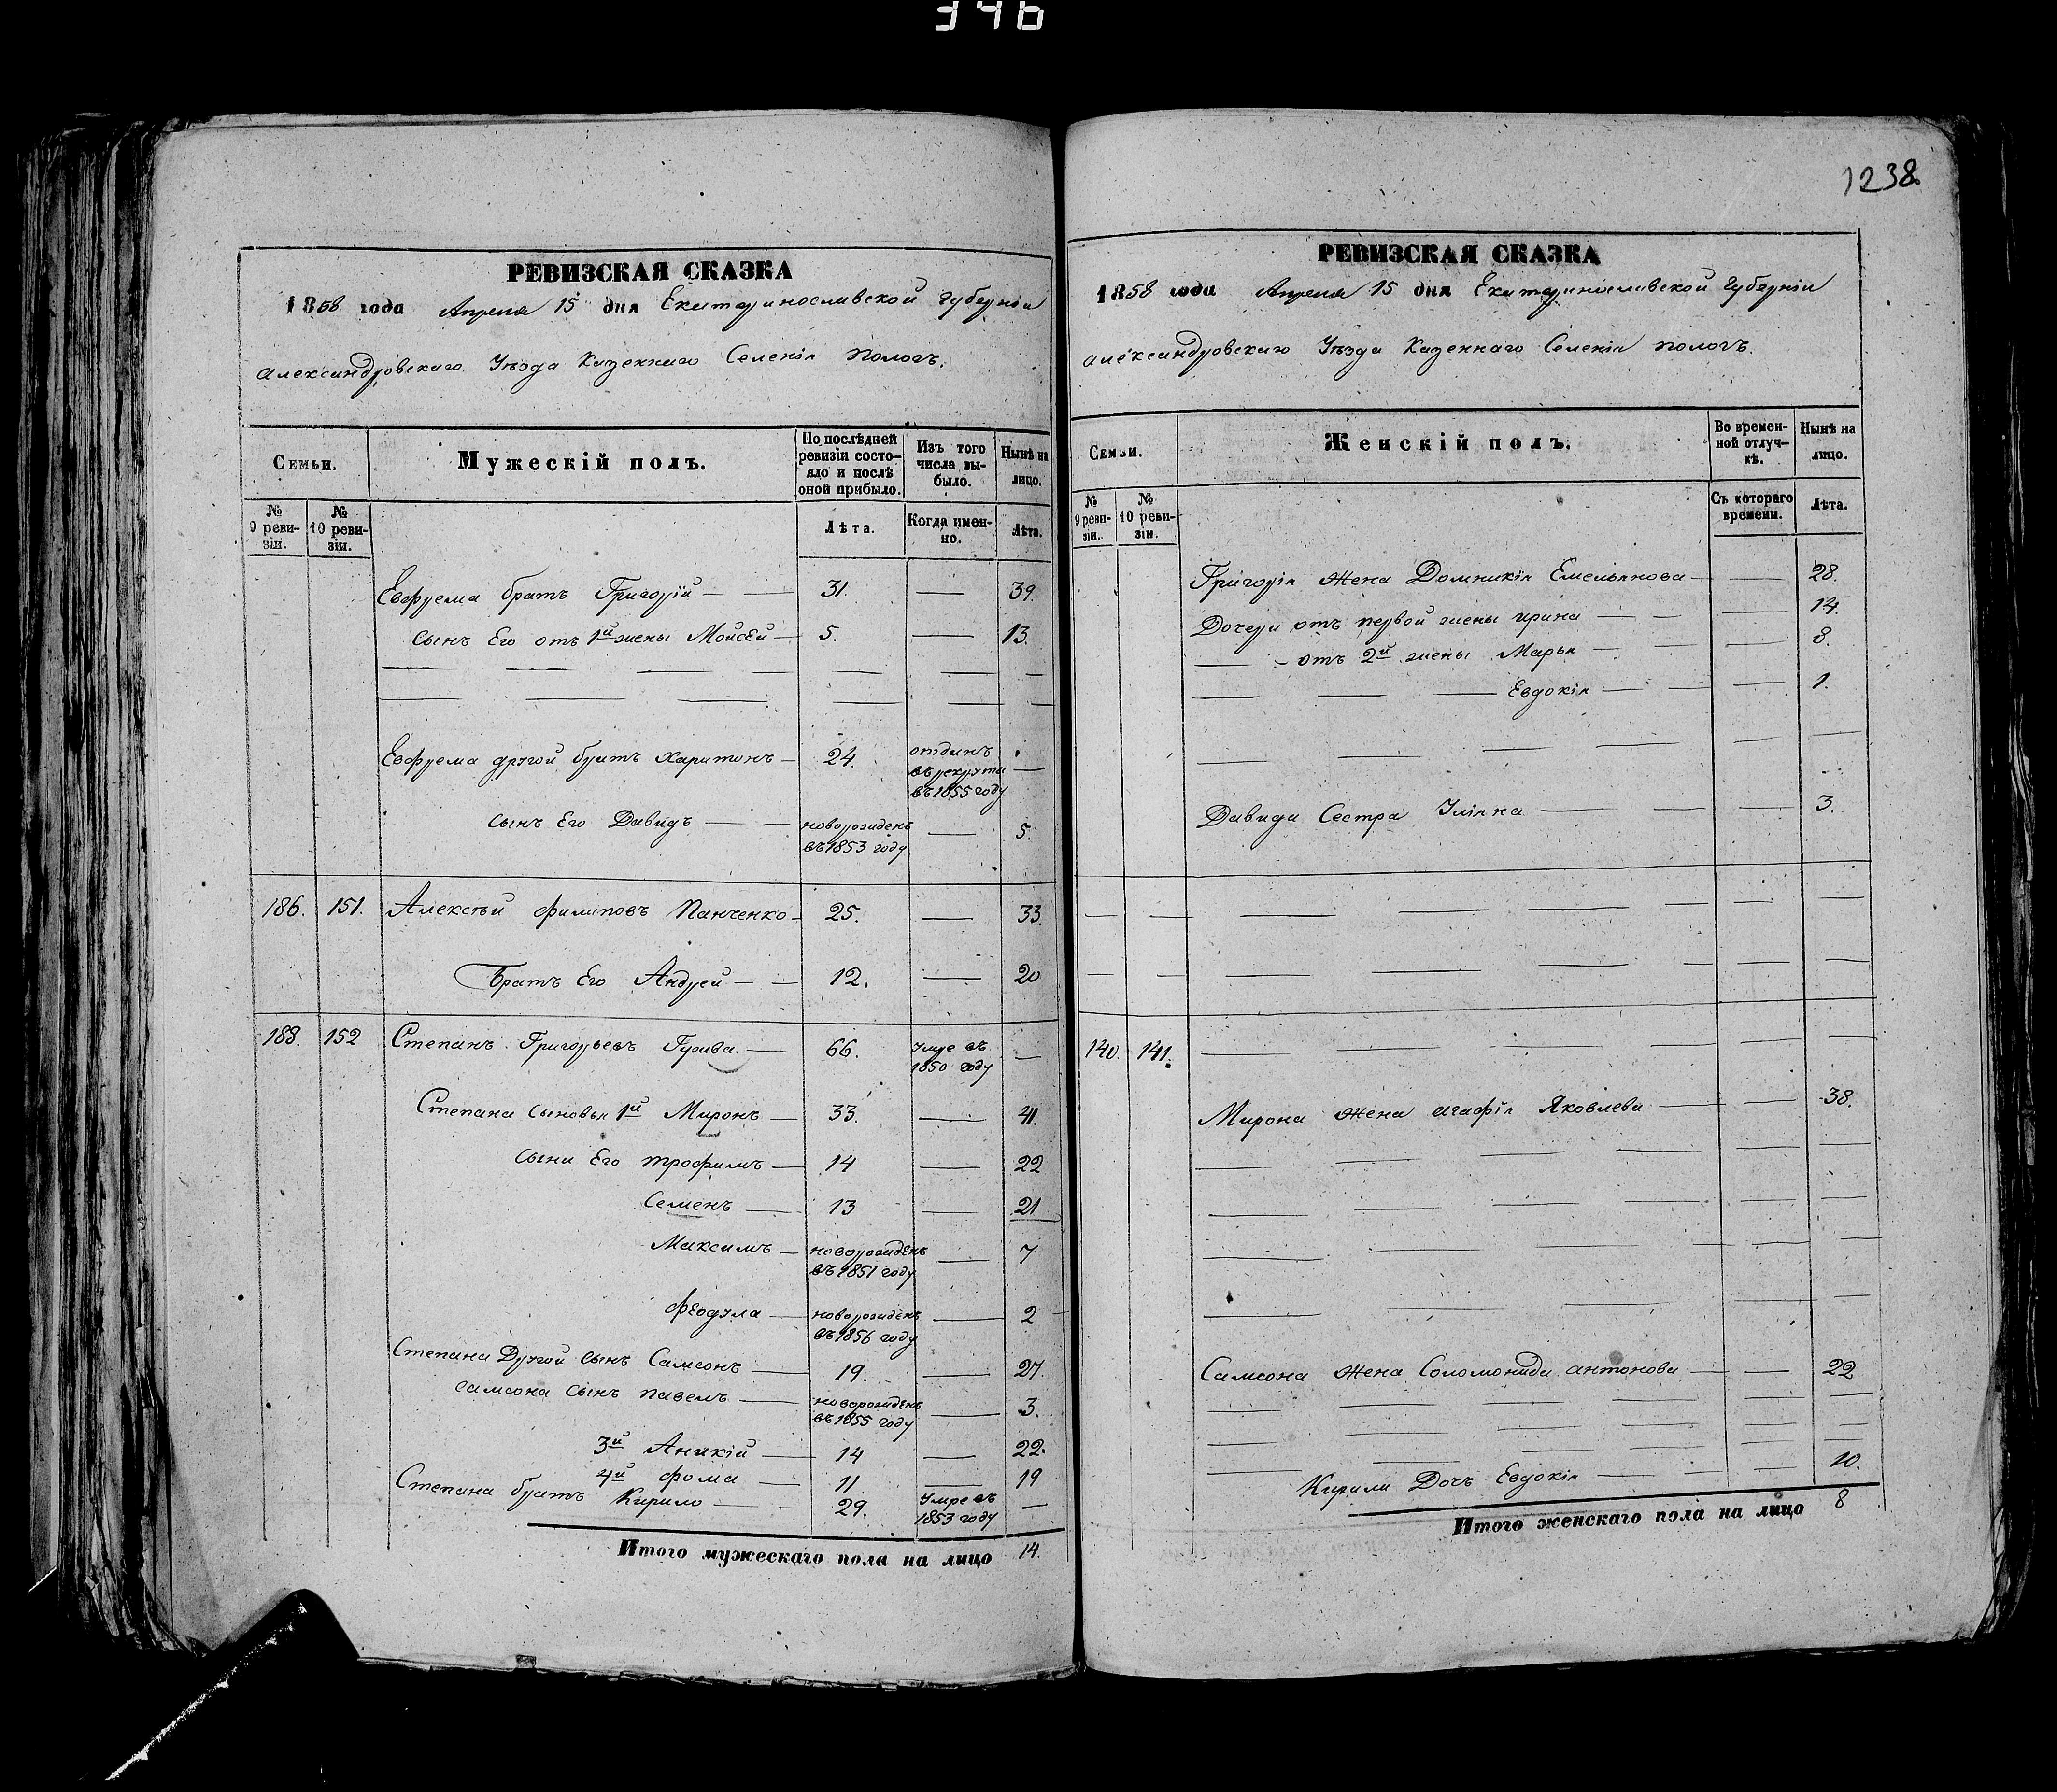 346
1238.
РЕВИЗСКАЯ СКАЗКА
1858 года Апреля 15 дня Екатеринославской Губерніи
Александровскаго Уѣзда Казеннаго Селенія Пологъ.
Семьи.
Мужескій полъ.
По послѣдней ревизіи состояло и послѣ оной прибыло.
Изъ того числа выбыло.
Нынѣ на лицо.
№ 9 ревизіи.
№ 10 ревизіи.
Лѣта.
Когда именно.
Лѣта.
Евфрема братъ Григорій — 31. — 39.
сынъ Его отъ 1й жены Мойсей — 5. — 13.
Евфрема другой братъ Харитонъ — 24. отданъ въ рекруты въ 1855 году —
сынъ Его Давидъ — новорожденъ въ 1853 году — 5.
186. 151. Алексѣй Филиповъ Панченко — 25. — 33.
Братъ Его Андрей — 12. — 20
188. 152 Степанъ Григорьевъ — 66. Умре въ 1850 году —
Степана сыновья 1й Миронъ — 33. — 41.
сыни Его Трофимъ — 14 — 22
Семенъ — 13 — 21
Максимъ — новорожденъ въ 1851 году — 7
Феодула — новорожденъ въ 1856 году — 2
Степана Другой сынъ Самсонъ — 19. — 27.
Самсона сынъ Павелъ — новорожденъ въ 1855 году — 3.
3й Аникій — 14 — 22.
4й Фома — 11. — 19
Степана братъ Кирило — 29. Умре въ 1853 году —
Итого мужескаго пола на лицо 14.
РЕВИЗСКАЯ СКАЗКА
1858 года Апреля 15 дня Екатеринославской Губерніи
Александровскаго Уѣзда Казеннаго Селенія Пологъ.
Семьи.
Женскій полъ.
Во временной отлучкѣ.
Нынѣ на лицо.
№ 9 ревизіи.
№ 10 ревизіи.
Съ котораго времени.
Лѣта.
Григорія Жена Домникія Емельянова — — 28.
Дочери отъ первой жены Ирина — — 14.
— отъ 2й жены Марья — — 8.
— Евдокія — — 1.
Давида Сестра Уліяна — — 3.
140. 141.
Мирона Жена Агафія Яковлева — — 38.
Самсона Жена Соломонида Антонова — — 22
Кирила Дочь Евдокія — — 10.
Итого женскаго пола на лицо 8